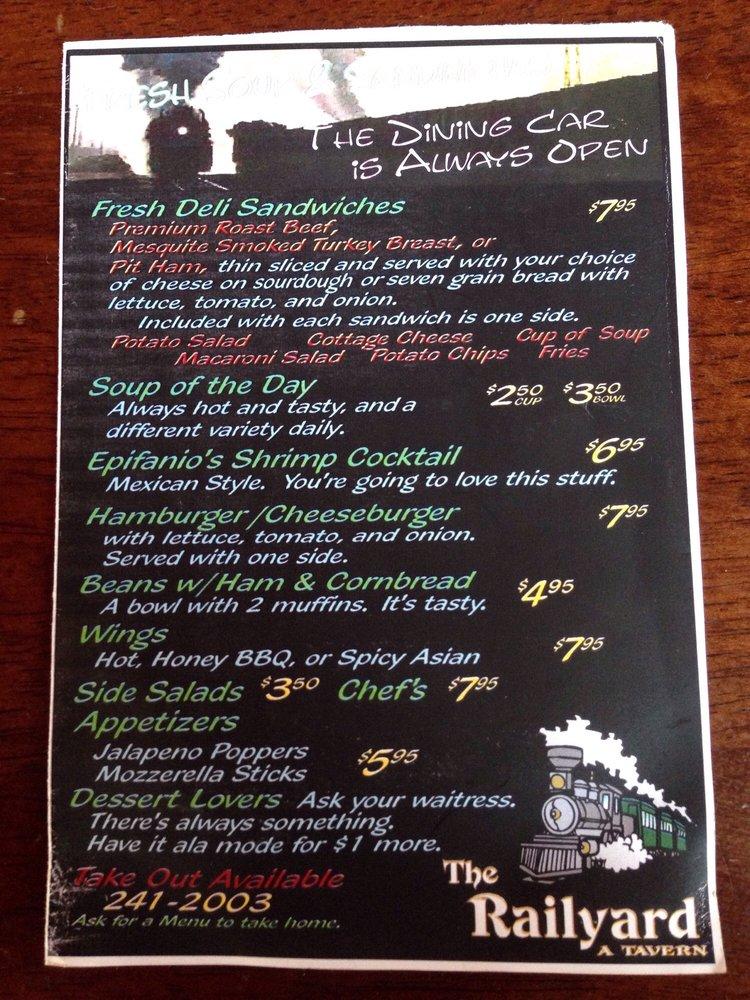 FRESH SOUP & SANDWICHES
THE DINING CAR
IS ALWAYS OPEN
Fresh Deli Sandwiches $7.95
Premium Roast Beef,
Mesquite Smoked Turkey Breast, or
Pit Ham, thin sliced and served with your choice
of cheese on sourdough or seven grain bread with
lettuce, tomato, and onion.
Included with each sandwich is one side.
Potato Salad Cottage Cheese Cup of Soup
Macaroni Salad Potato Chips Fries
Soup of the Day $2.50 CUP $3.50 BOWL
Always hot and tasty, and a
different variety daily.
Epifanio's Shrimp Cocktail $6.95
Mexican Style. You're going to love this stuff.
Hamburger/Cheeseburger $7.95
with lettuce, tomato, and onion.
Served with one side.
Beans w/Ham & Cornbread $4.95
A bowl with 2 muffins. It's tasty.
Wings $7.95
Hot, Honey BBQ, or Spicy Asian
Side Salads $3.50 Chef's $7.95
Appetizers
Jalapeno Poppers $5.95
Mozzerella Sticks
Dessert Lovers Ask your waitress.
There's always something.
Have it ala mode for $1 more.
Take Out Available
241-2003
Ask for a Menu to take home.
The
Railyard
A TAVERN